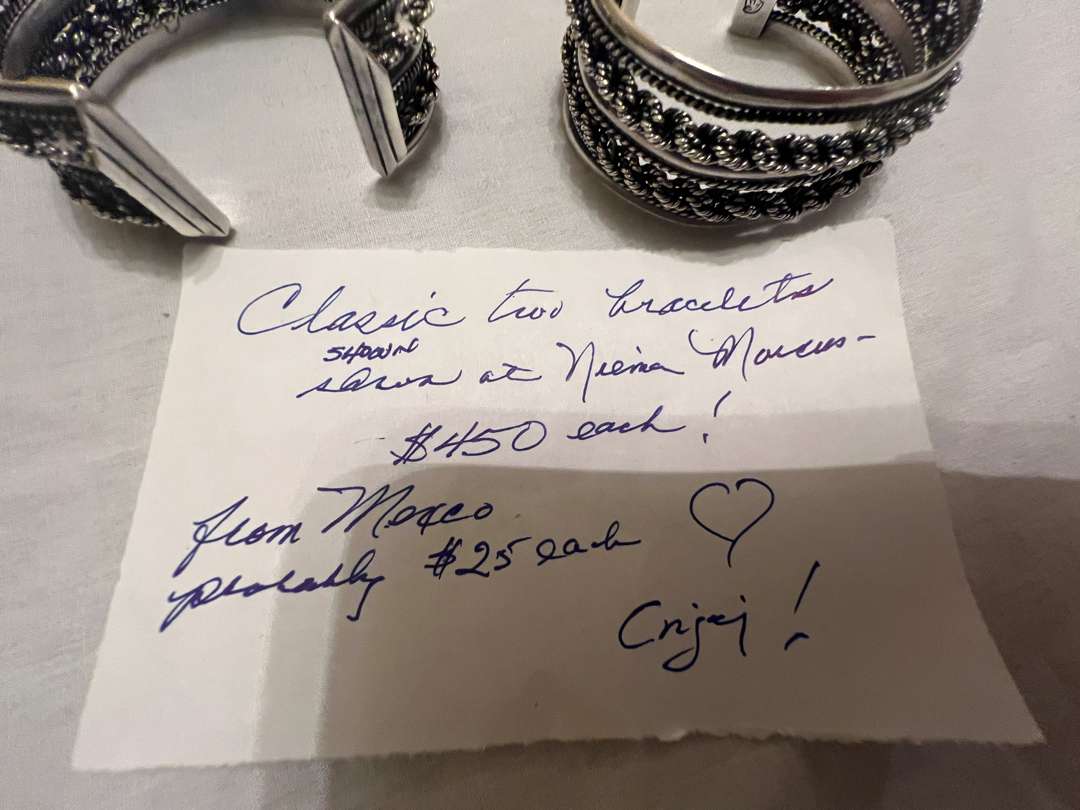 Classic two bracelets
SHOWN
shown at Niema Marcus-
$450 each!
from Mexco
probably $25 each
Enjoy!